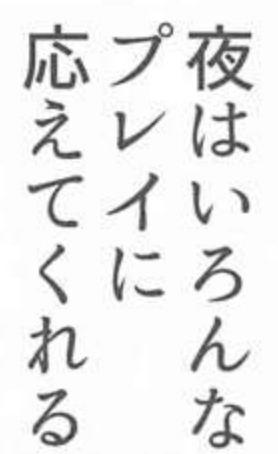 夜はいろんな
プレイに
応えてくれる